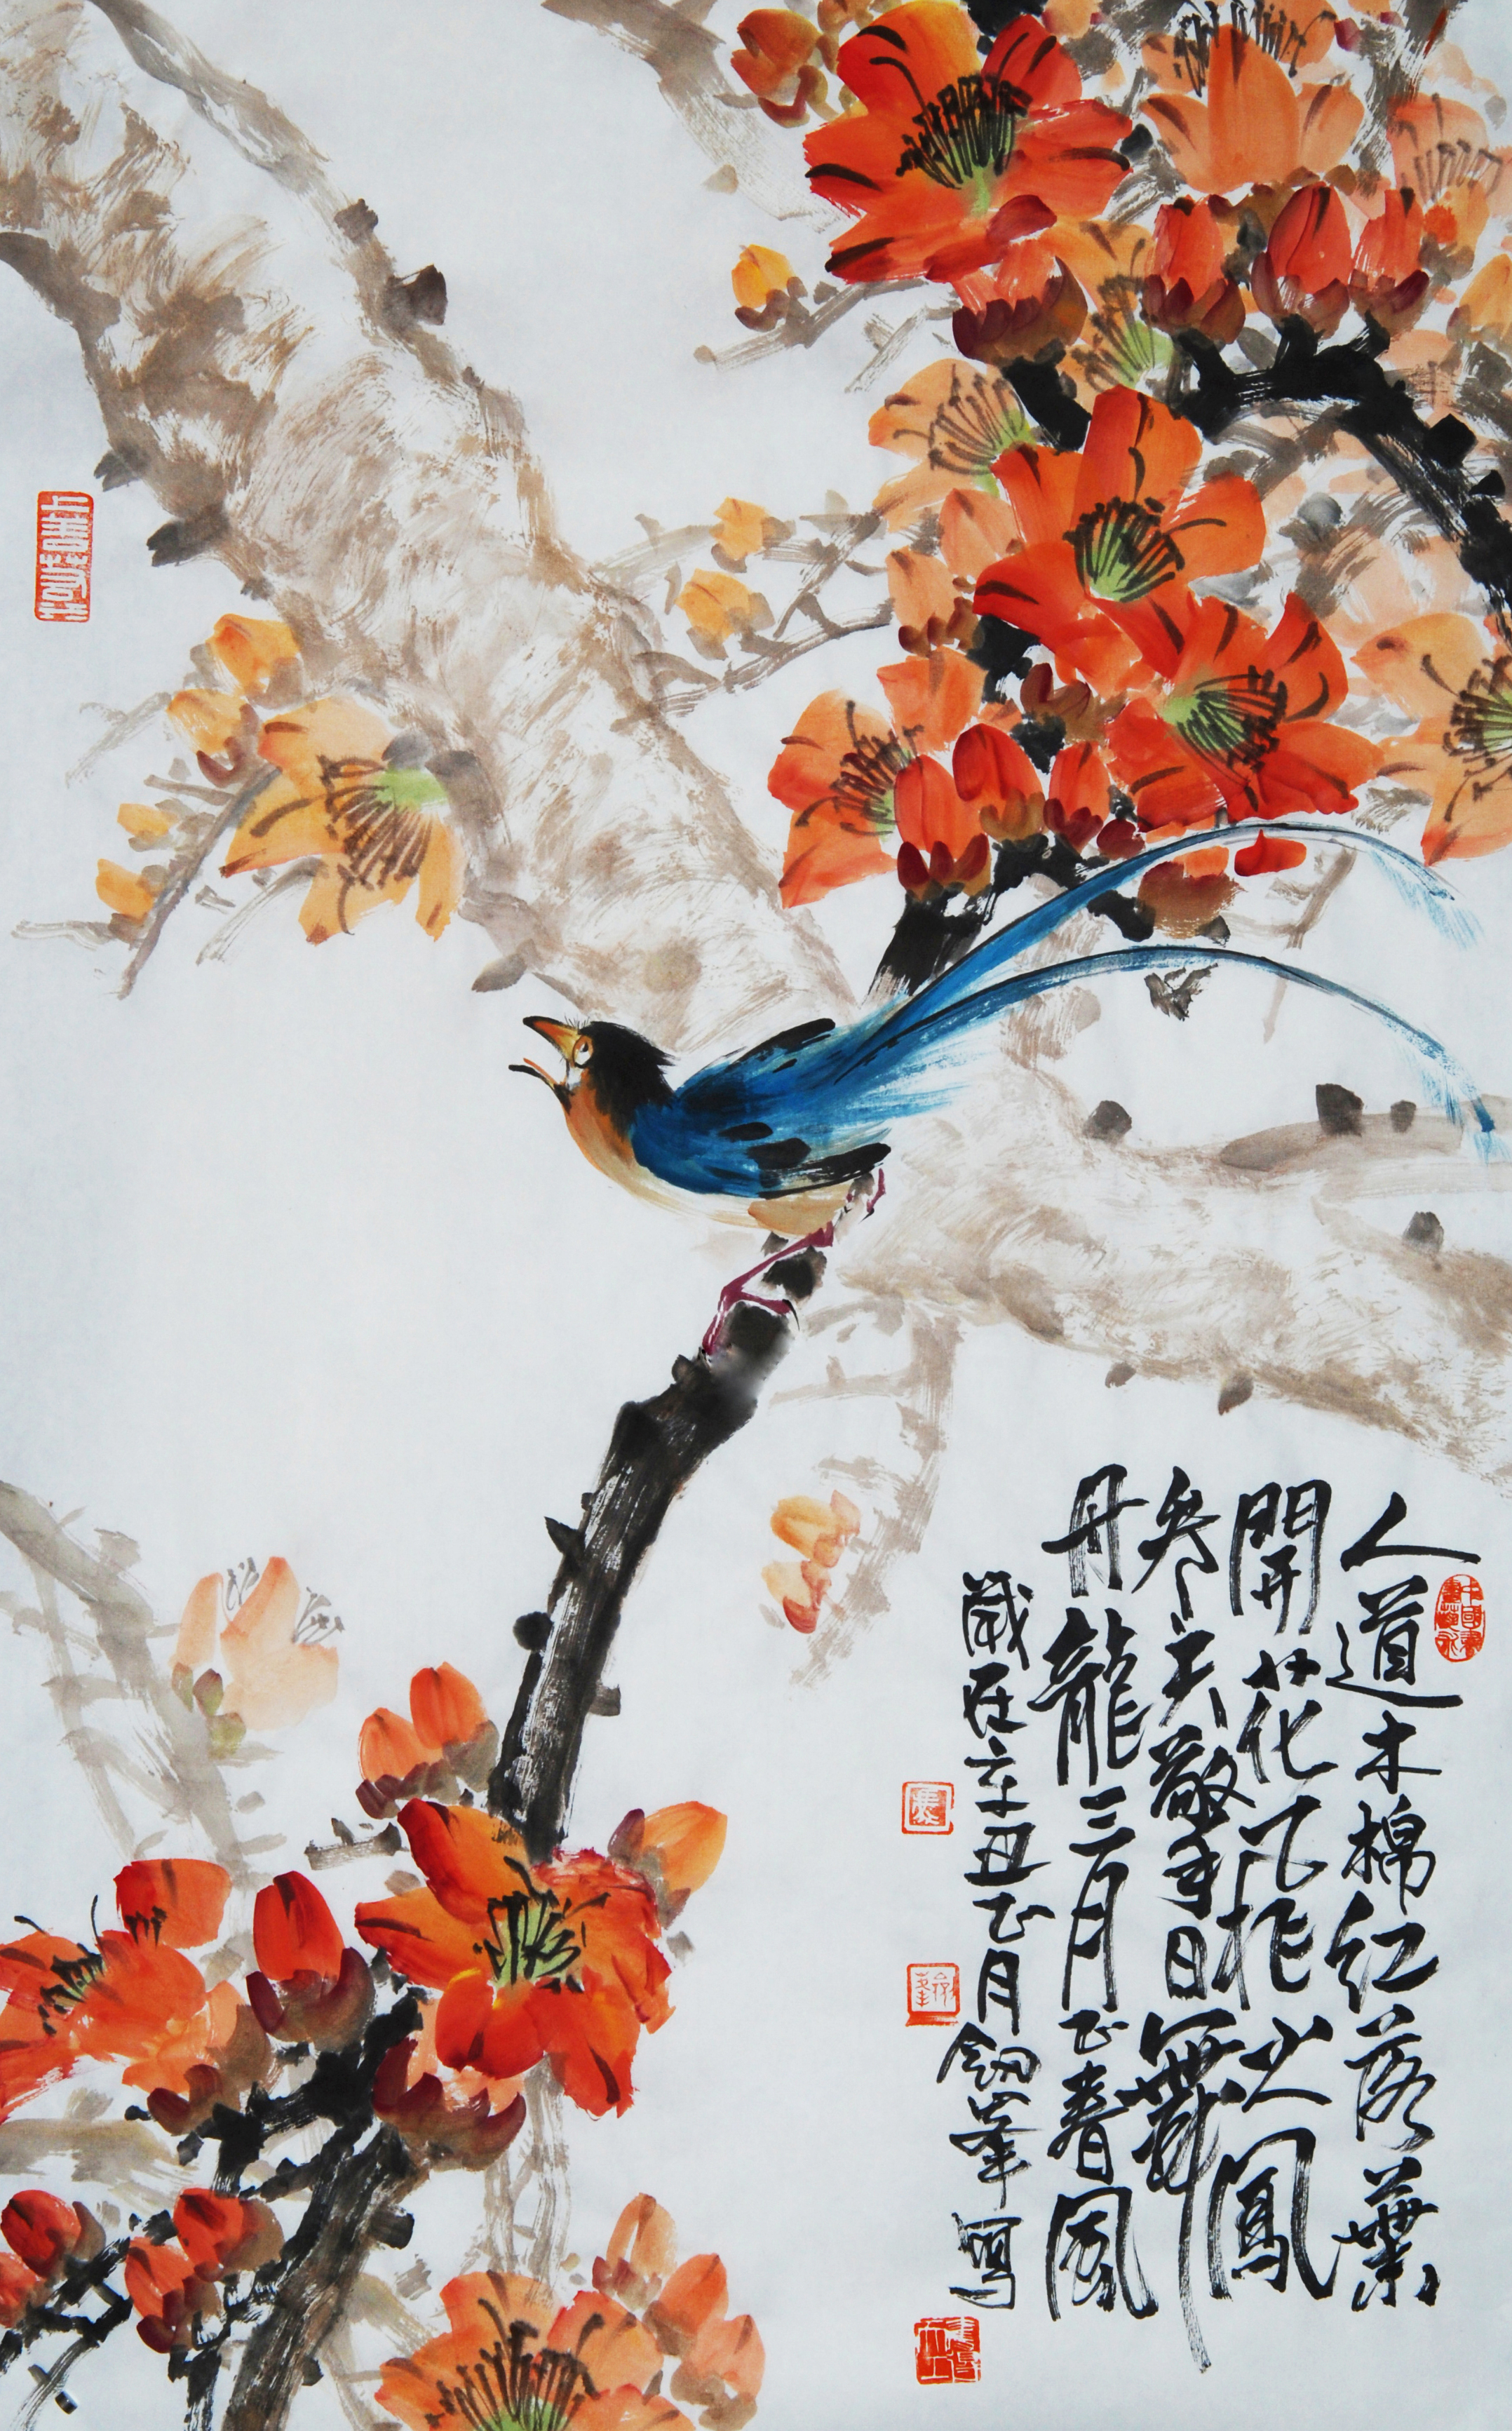 人道木棉紅落葉
開花又作火鳳
參天擎日舞
丹龍三月正春風
歲在辛丑正月劍峯寫